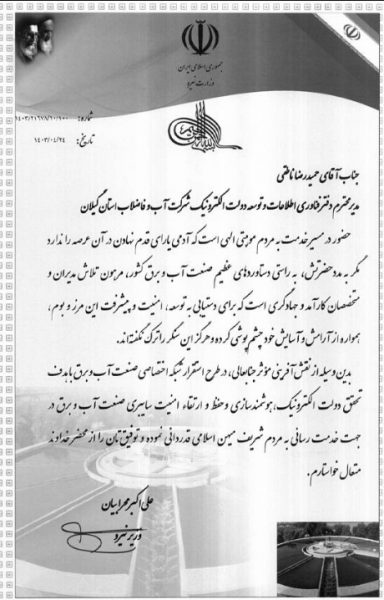 جمهوری اسلامی ایران
وزارت نیرو
شماره: ۱۴۰۳/۲۱۶۷۸/۱۰/۱۰۰
تاریخ: ۱۴۰۳/۰۴/۲۴
جناب آقای حمیدرضا ناطقی
مدیر محترم دفتر فناوری اطلاعات و توسعه دولت الکترونیک شرکت آب و فاضلاب استان گیلان
حضور در مسیر خدمت به مردم موهبتی الهی است که آدمی یارای قدم نهادن در آن عرصه را ندارد
مگر به مدد حضرتش، به راستی دستاوردهای عظیم صنعت آب و برق کشور، مرهون تلاش مدیران و
متخصصان کارآمد و جهادگری است که برای دستیابی به توسعه، امنیت و پیشرفت این مرز و بوم،
همواره از آرامش و آسایش خود چشم پوشی کرده و هرگز این سنگر را ترک نگفته‌اند.
بدین وسیله از نقش آفرینی مؤثر جنابعالی، در طرح استقرار شبکه اختصاصی صنعت آب و برق با هدف
تحقق دولت الکترونیک، هوشمندسازی و حفظ و ارتقاء امنیت سایبری صنعت آب و برق در
جهت خدمت رسانی به مردم شریف میهن اسلامی قدردانی نموده و توفیق‌تان را از محضر خداوند
متعال خواستارم.
علی اکبر محرابیان
وزیر نیرو